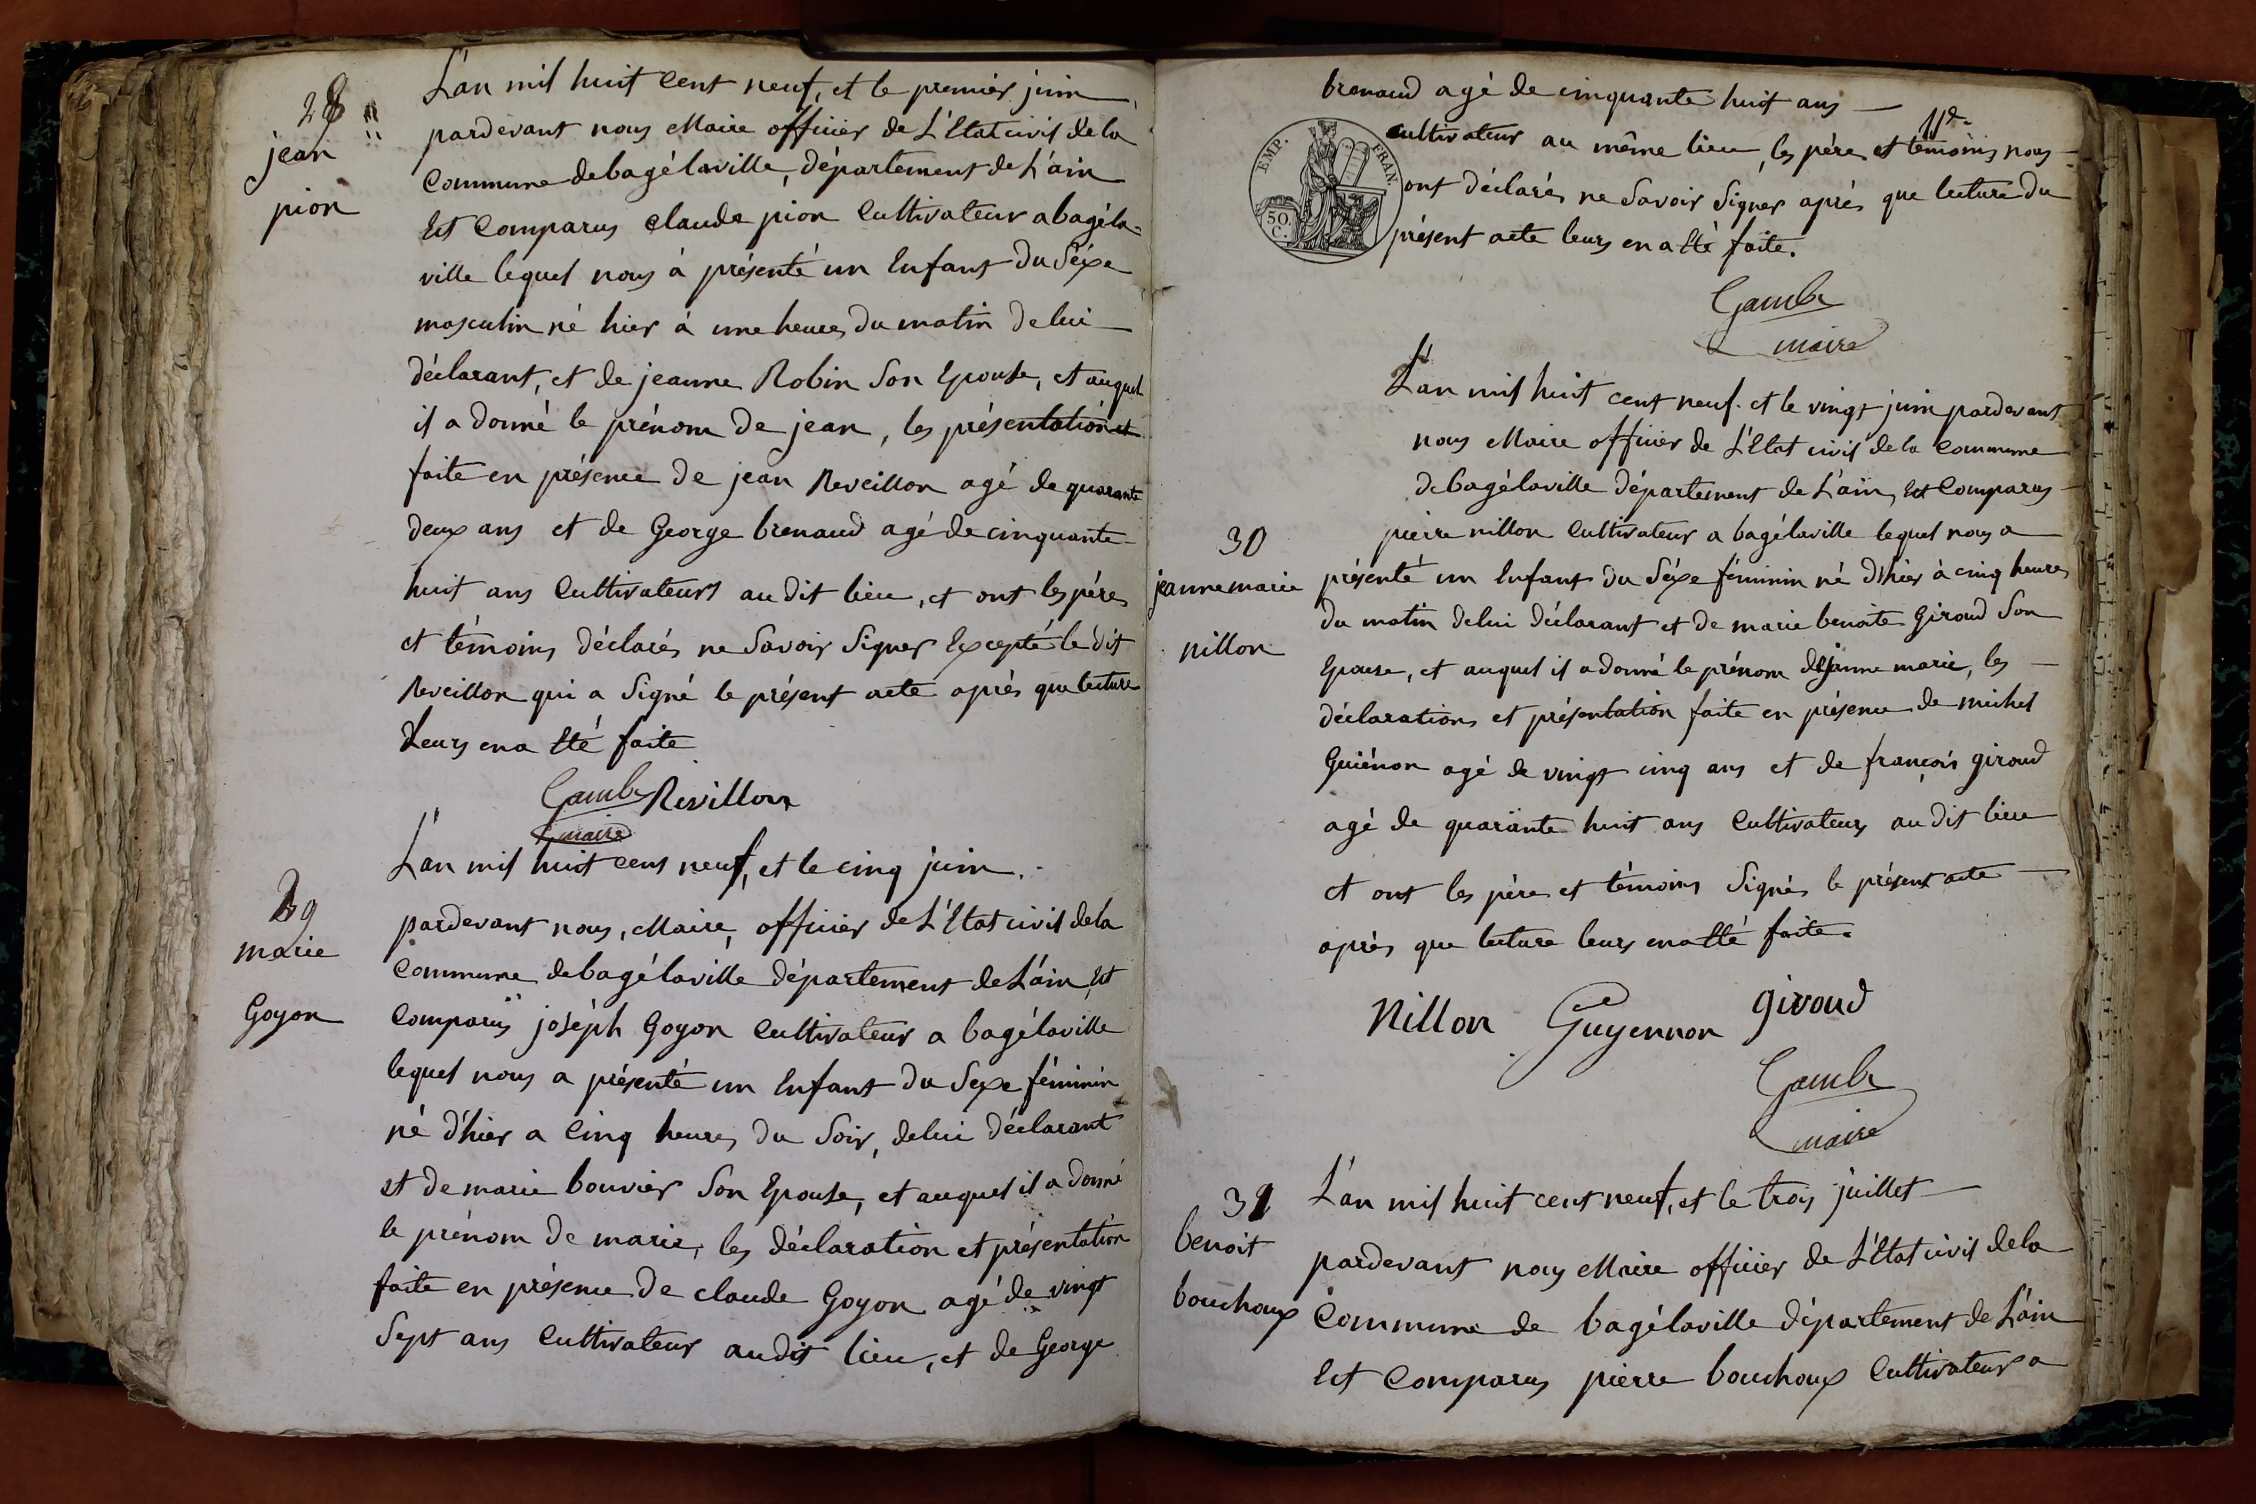 28
jean
pion
L'an mil huit cent neuf, et le premier juin
pardevant nous Maire officier de L'Etat civil de la
Commune de bagélaville, département de L'ain
Est Comparus Claude pion Cultivateur a bagéla-
ville lequel nous à présenté un Enfant du Séxe
masculin né hier à une heures du matin de lui
déclarant, et de jeanne Robin Son Epouse, et auquel
il a donné le prénom de jean, les présentation et
faite en présence de jean Reveillon agé de quarante
deux ans et de George brenaud agé de cinquante
huit ans Cultivateurs au dit lieu, et ont les péres
et témoins déclarés ne Savoir Signer Excepté le dit
Reveillon qui a Signé le présent acte après que lecture
Leurs en a Eté faite
Gambe Revillon
maire
29
marie
Goyon
L'an mil huit cent neuf, et le cinq juin.
pardevant nous, Maire, officier de L'Etat civil de la
Commune de bagélaville département de L'ain, Est
Comparus joséph Goyon Cultivateur a bagélaville
lequel nous a présenté un Enfant du Sexe féminin
né d'hier a Cinq heures du Soir, de lui déclarant
et de marie bouvier Son Epouse, et auquel il a donné
le prénom de marie, les déclaration et présentation
faite en présence de claude Goyon agé de vingt
Sept ans Cultivateur audit lieu, et de George
brenaud agé de cinquante huit ans
11e
cultivateur au même lieu, les père et témoins nous
ont déclarés ne Savoir Signer après que lecture du
présent acte leurs en a Eté faite.
TEMP. FRAN.
50.
C.
Gambe
maire
30
jeanne marie
nillon
L'an mil huit cent neuf. et le vingt juin pardevant
nous Maire officier de L'Etat civil de la Commune
de bagélaville département de L'ain, Est Comparus
pierre nillon Cultivateur a bagélaville lequel nous a
présenté un Enfant du Séxe féminin né d'hier à cinq heures
du matin de lui déclarant et de marie benoite Giroud Son
Epouse, et auquel il a donné le prénom de jeanne marie, les
déclarations et présentation faite en présence de michel
Guiénon agé de vingt cinq ans et de françois giroud
agé de quarante huit ans Cultivateurs au dit lieu
et ont les père et témoins Signés le présent acte
après que lecture leurs en a Eté faite.
Nillon Guyennon giroud
Gambe
maire
31
benoit
bouchoux
L'an mil huit cent neuf, et le trois juillet
pardevant nous Maire officier de L'Etat civil de la
Commune de bagélaville département de L'ain
Est Comparus pierre bouchoux Cultivateur a